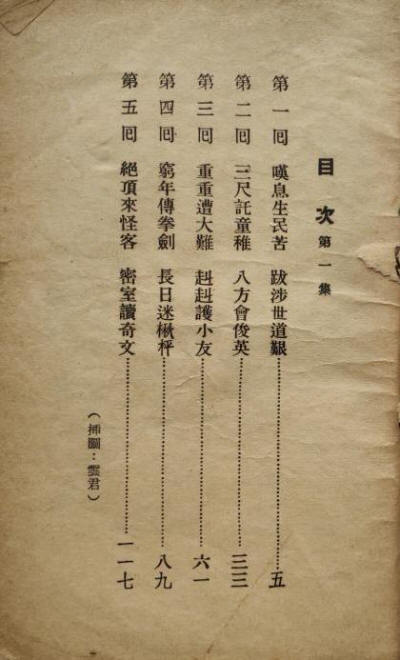 目次 第一集
第一囘 嘆息生民苦 跋涉世道艱……五
第二囘 三尺託童稚 八方會俊英……三三
第三囘 重重遭大難 赳赳護小友……六一
第四囘 窮年傳拳劍 長日迷楸枰……八九
第五囘 絕頂來怪客 密室讀奇文……一一七
（揷圖：雲君）